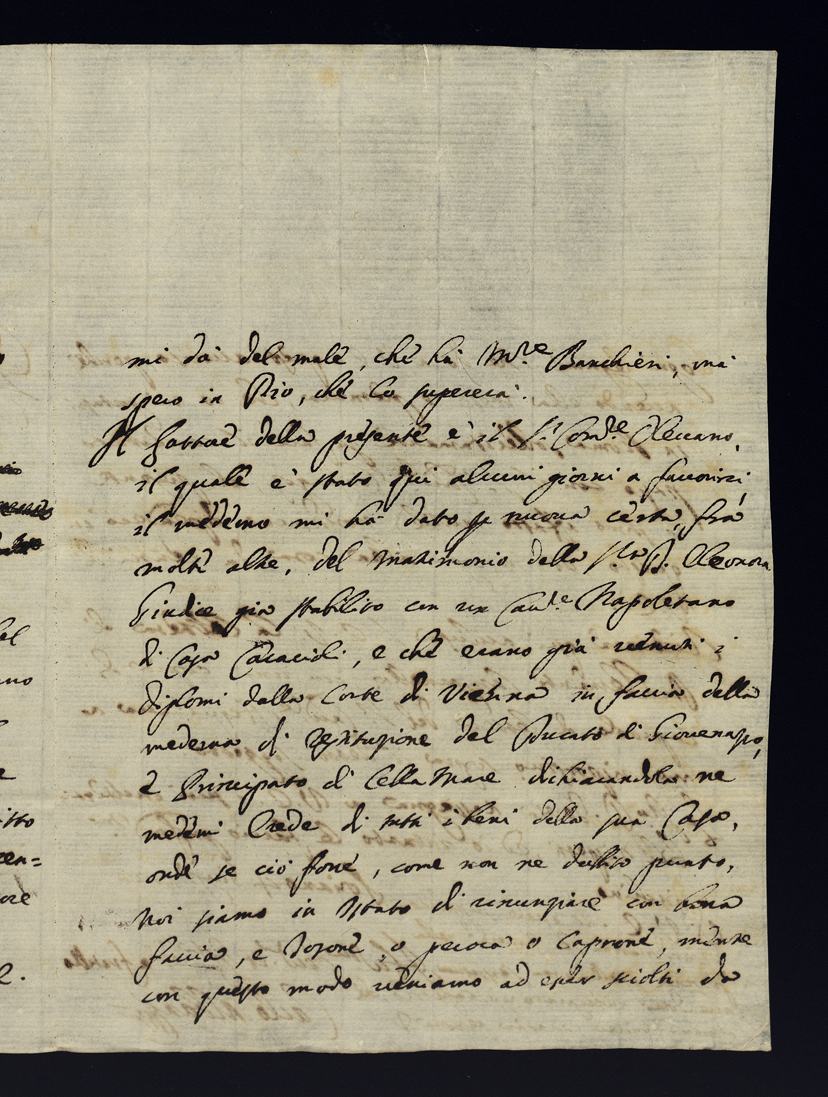 mi dà del male, che hà Mre. Banchieri, mà
spero in Dio, che lo supererà.
Il lattore della presente è il Sr. Comde. Olevano,
il quale è stato qui alcuni giorni a favorirci,
il medemo mi hà dato p nuova certa, frà
molte altre, del matrimonio della Sra. D. Eleonora
Giudice già stabilito con un Cavre. Napoletano
di Casa Caracioli, e che erano già venuti i
diplomi dalla Corte di Vienna in faccia della
medema di restituzione del Ducato di Giovenazzo,
e Principato di Cella Mare dichiarandola ne
medemi Erede di tutti i beni della sua Casa,
onde se ciò fosse, come non ne dubito punto,
noi siamo in stato di rinunziare con bona
faccia, e Tosone, o pecora o Caprone, mentre
con questo modo veniamo ad esser sciolti da